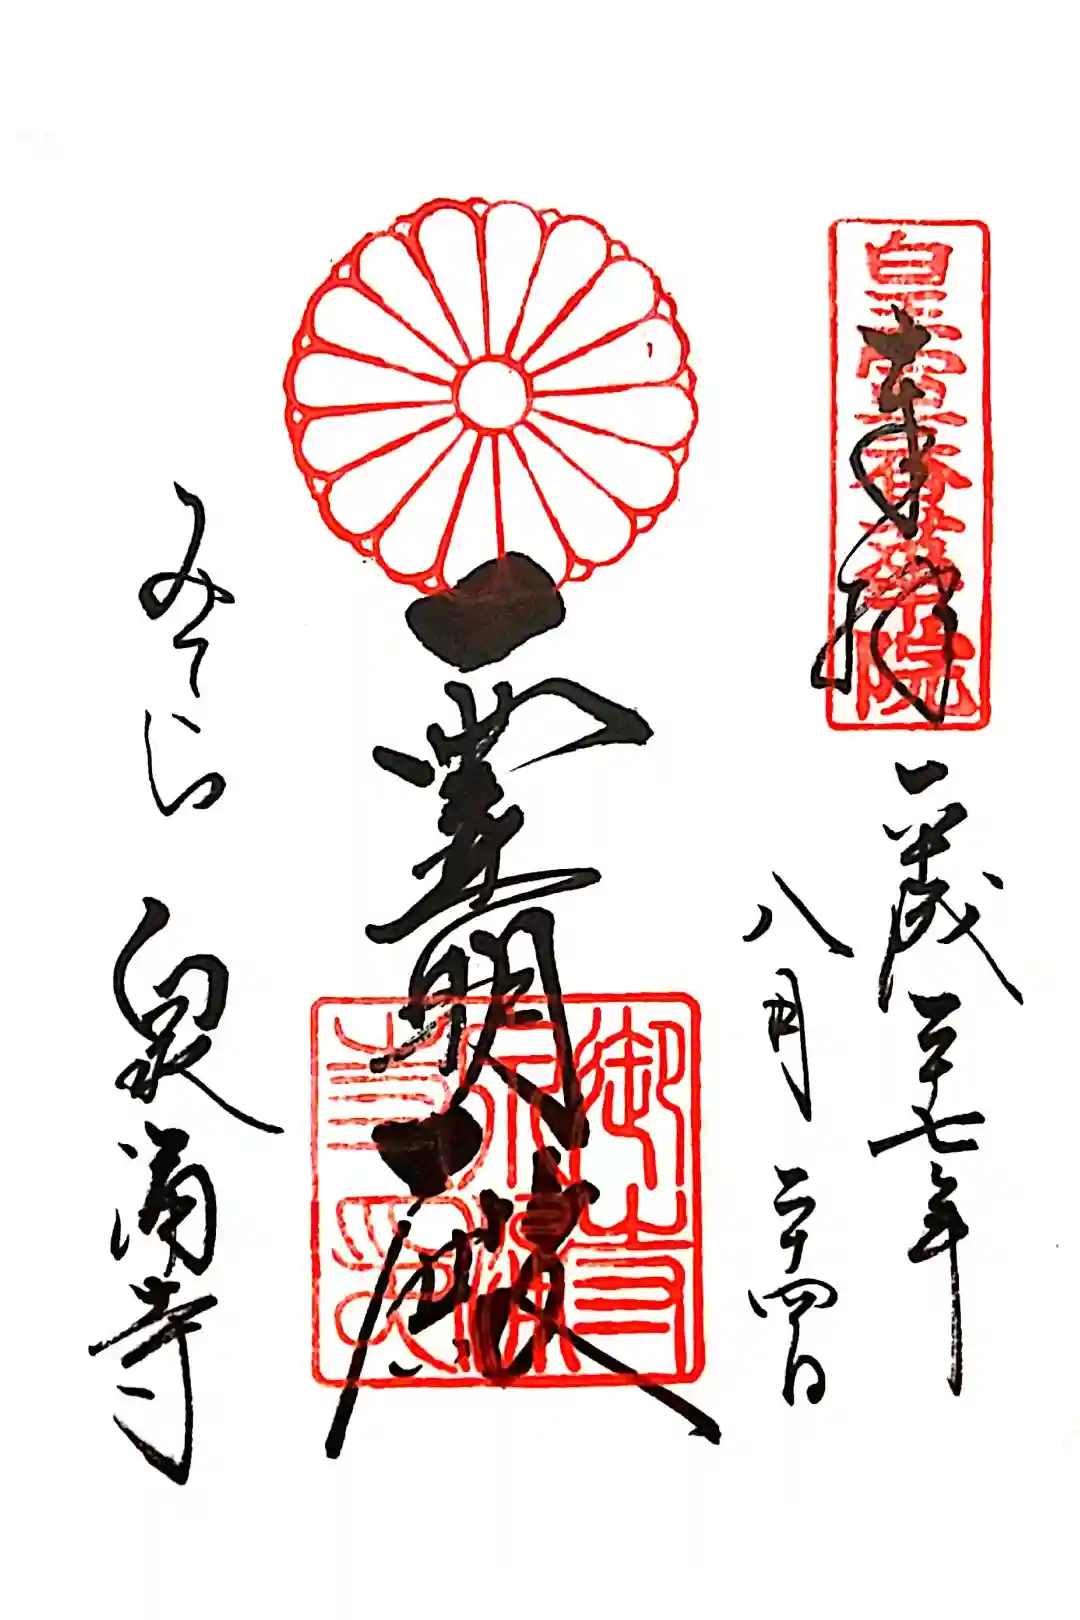 皇室香華院
奉拝
平成二十七年
八月二十四日
霊明殿
御寺泉涌寺印
みてら
泉涌寺